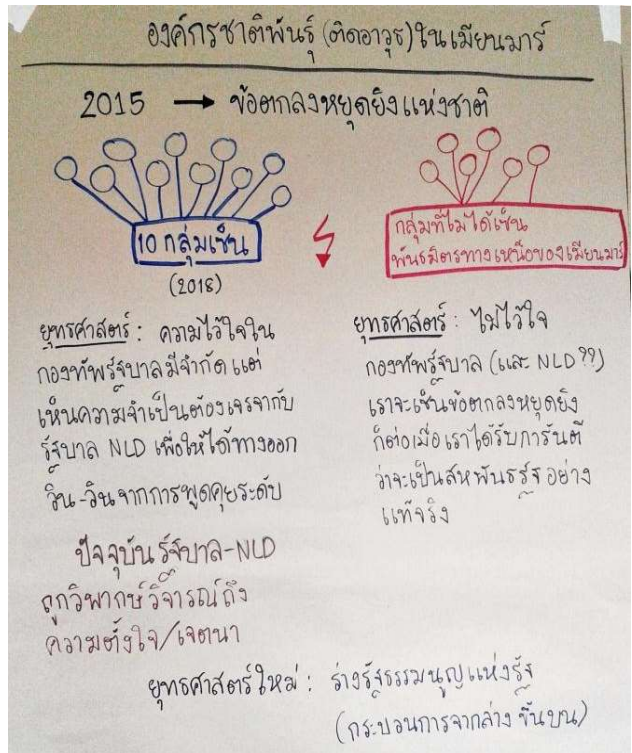 องค์กรชาติพันธุ์ (ติดอาวุธ) ในเมียนมาร์
2015 → ข้อตกลงหยุดยิงแห่งชาติ
10 กลุ่มเซ็น
(2018)
กลุ่มที่ไม่ได้เซ็น
พันธมิตรทางเหนือของเมียนมาร์
ยุทธศาสตร์ : ความไว้ใจใน
กองทัพรัฐบาลมีจำกัด แต่
เห็นความจำเป็นต้องเจรจากับ
รัฐบาล NLD เพื่อให้ได้ทางออก
วิน-วินจากการพูดคุยระดับ
ปัจจุบันรัฐบาล-NLD
ถูกวิพากษ์วิจารณ์ถึง
ความตั้งใจ/เจตนา
ยุทธศาสตร์ : ไม่ไว้ใจ
กองทัพรัฐบาล (และ NLD ??)
เราจะเซ็นข้อตกลงหยุดยิง
ก็ต่อเมื่อเราได้รับการันตี
ว่าจะเป็นสหพันธรัฐอย่าง
แท้จริง
ยุทธศาสตร์ใหม่ : ร่างรัฐธรรมนูญแห่งรัฐ
(กระบวนการจากล่างขึ้นบน)